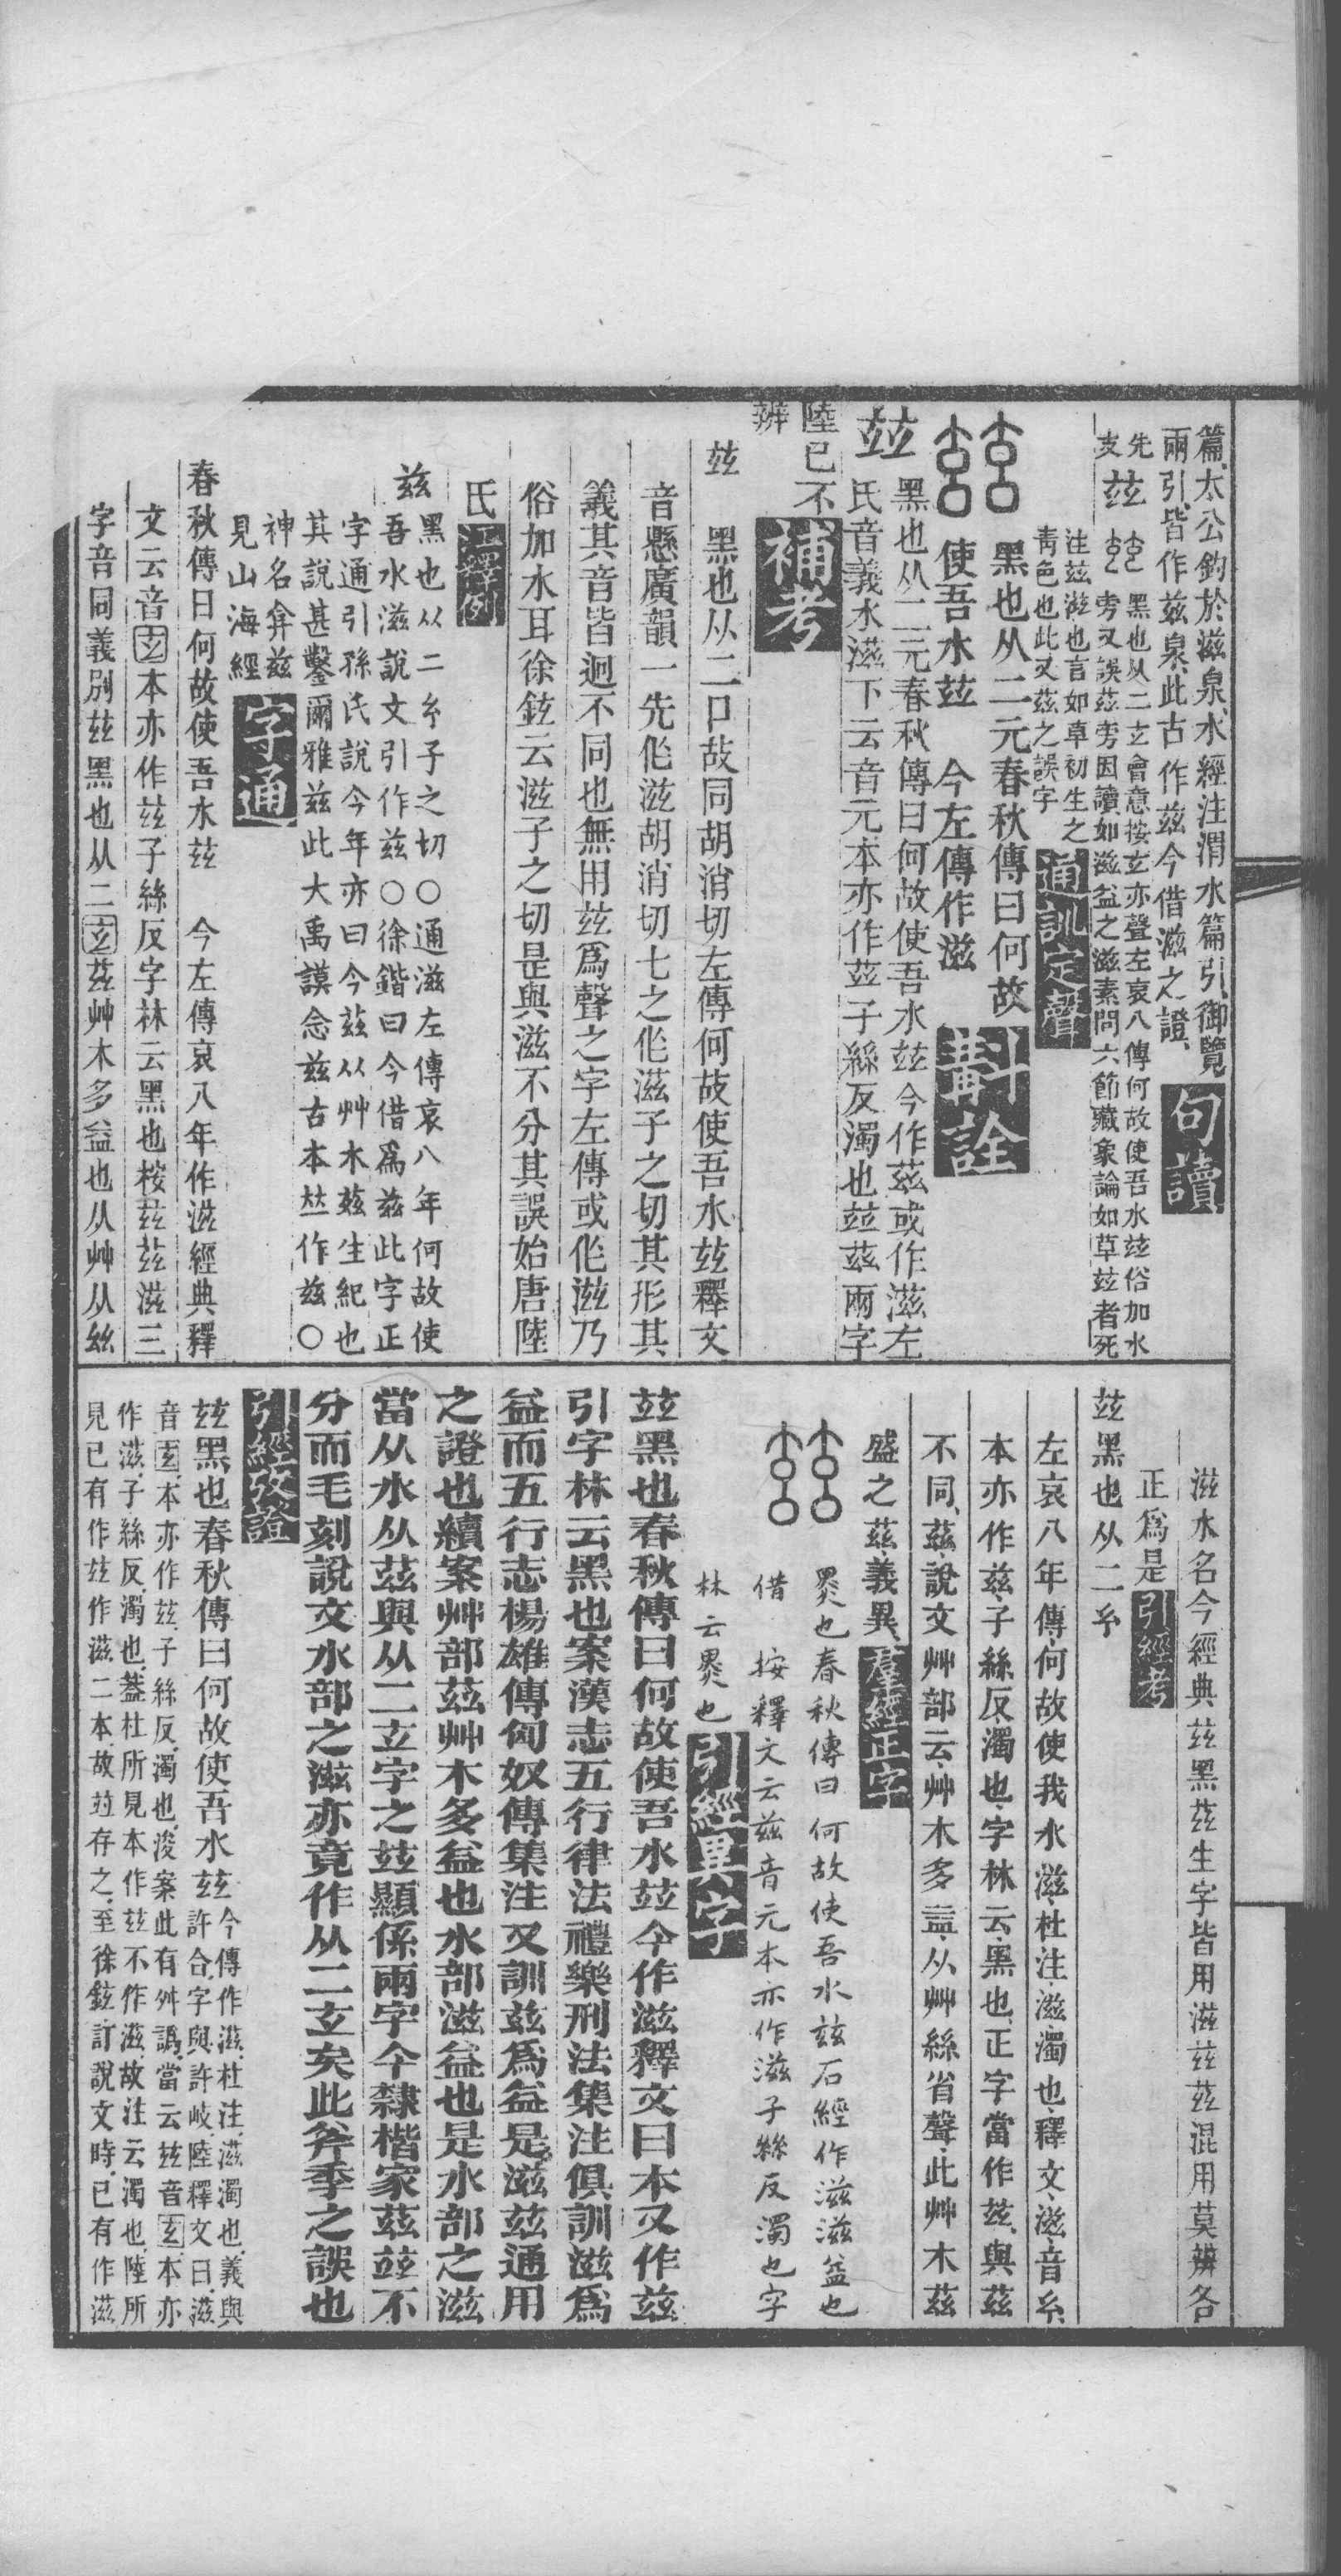 篇太公釣於滋泉水經注渭水篇引御覽
兩引皆作茲泉此古作茲今借滋之證
句讀
先
支
玆
黑也从二玄會意按玄亦聲左哀八傳何故使吾水玆俗加水
旁又誤茲旁因讀如滋益之滋素問六節藏象論如草玆者死
注玆滋也言如草初生之
靑色也此又茲之誤字
通訓定聲
黑也从二元春秋傳曰何故
使吾水玆 今左傳作滋
斠詮
玆
黑也从二元春秋傳曰何故使吾水玆今作茲或作滋左
氏音義水滋下云音元本亦作茲子絲反濁也玆茲兩字
陸已不
辨
補考
玆
黑也从二口故同胡涓切左傳何故使吾水玆釋文
音懸廣韻一先作滋胡涓切七之作滋子之切其形其
義其音皆迥不同也無用玆爲聲之字左傳或作滋乃
俗加水耳徐鉉云滋子之切是與滋不分其誤始唐陸
氏
江釋例
玆
黑也从二糸子之切○通滋左傳哀八年何故使
吾水滋說文引作玆○徐鍇曰今借爲茲此字正
字通引孫氏說今年亦曰今茲从艸木茲生紀也
其說甚鑿爾雅茲此大禹謨念茲古本𠀤作玆○
神名弇茲
見山海經
字通
春秋傳曰何故使吾水玆 今左傳哀八年作滋經典釋
文云音玄本亦作玆子絲反字林云黑也桉茲玆滋三
字音同義別玆黑也从二玄茲艸木多益也从艸从絲
滋水名今經典玆黑茲生字皆用滋玆茲混用莫辨各
正爲是
引經考
玆黑也从二糸
左哀八年傳何故使我水滋杜注滋濁也釋文滋音糸
本亦作茲子絲反濁也字林云黑也正字當作玆與茲
不同茲說文艸部云艸木多益从艸絲省聲此艸木茲
盛之茲義異
羣經正字
黑也春秋傳曰何故使吾水玆石經作滋滋益也
借 按釋文云滋音元本亦作滋子絲反濁也字
林云黑也
引經異字
玆黑也春秋傳曰何故使吾水玆今作滋釋文曰本又作茲
引字林云黑也案漢志五行律法禮樂刑法集注俱訓滋爲
益而五行志楊雄傳匈奴傳集注又訓茲爲益是滋茲通用
之證也續案艸部茲艸木多益也水部滋益也是水部之滋
當从水从茲與从二玄字之玆顯係兩字今隸楷家茲玆不
分而毛刻說文水部之滋亦竟作从二玄矣此斧季之誤也
引經攷證
玆黑也春秋傳曰何故使吾水玆
今傳作滋杜注滋濁也義與
許合字與許岐陸釋文曰滋
音玄本亦作茲子絲反濁也浚案此有舛譌當云玆音玄本亦
作滋子絲反濁也葢杜所見本作玆不作滋故注云濁也陸所
見已有作玆作滋二本故𠀤存之至徐鉉訂說文時已有作滋